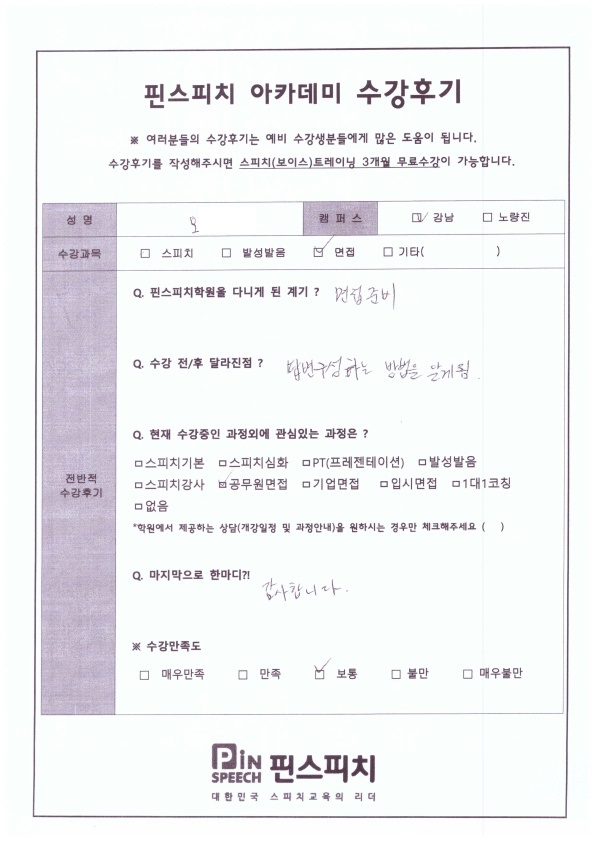 핀스피치 아카데미 수강후기
※ 여러분들의 수강후기는 예비 수강생분들에게 많은 도움이 됩니다.
수강후기를 작성해주시면 스피치(보이스)트레이닝 3개월 무료수강이 가능합니다.
성 명 오 캠 퍼 스 ☑ 강남 □ 노량진
수강과목 □ 스피치 □ 발성발음 ☑ 면접 □ 기타( )
Q. 핀스피치학원을 다니게 된 계기 ? 면접준비
Q. 수강 전/후 달라진점 ? 답변구성하는 방법을 알게됨.
Q. 현재 수강중인 과정외에 관심있는 과정은 ?
□스피치기본 □스피치심화 □PT(프레젠테이션) □발성발음
전반적 수강후기
□스피치강사 ☑공무원면접 □기업면접 □입시면접 □1대1코칭
□없음
*학원에서 제공하는 상담(개강일정 및 과정안내)을 원하시는 경우만 체크해주세요 ( )
Q. 마지막으로 한마디?! 감사합니다.
※ 수강만족도
□ 매우만족 □ 만족 ☑ 보통 □ 불만 □ 매우불만
PiN SPEECH 핀스피치
대한민국 스피치교육의 리더